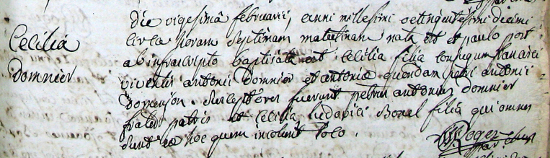 Cecilia
Domnier
Die vigesima februarii, anni millesimi octingentesimi decimi
circa horam septimam matutinam nata est et paulo post
ab infrascripto baptisata est Cecilia filia conjugum francisci
viventis antonii Domnier et antonia quondam petri antonii
Susceptores fuerunt petrus antonius domnier
frater patris et Cecilia ludovica Bonal filia qui omnes
sunt ex hoc quem incolunt loco.